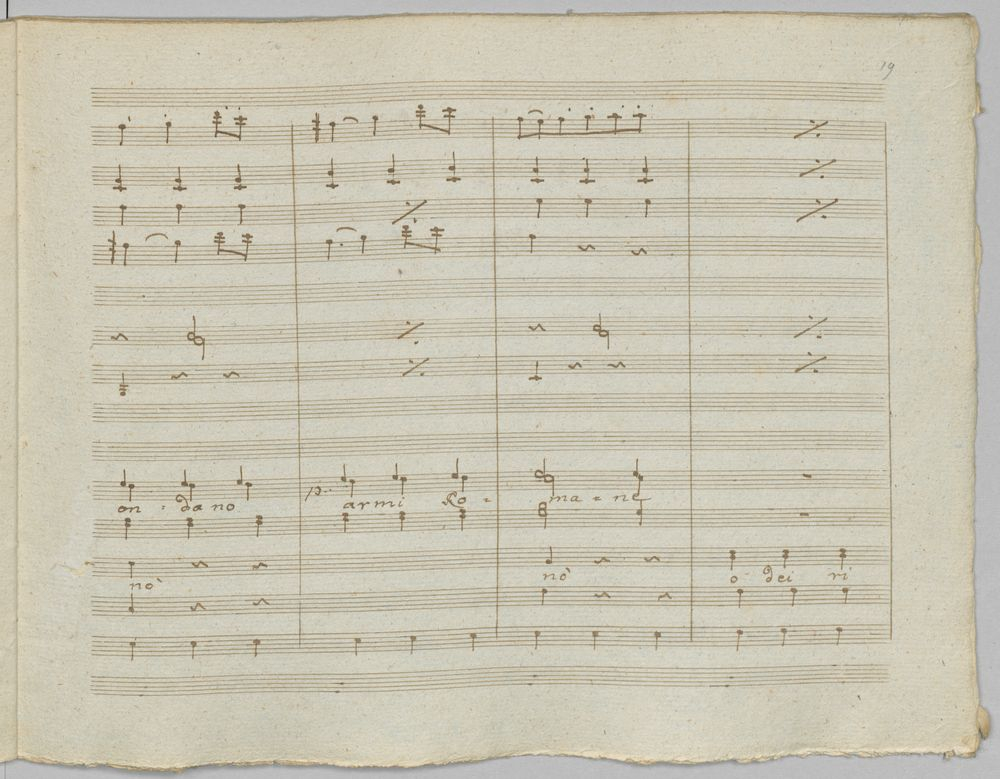 19
on - da no p. armi Ro - ma - ne
nò nò o dei ri